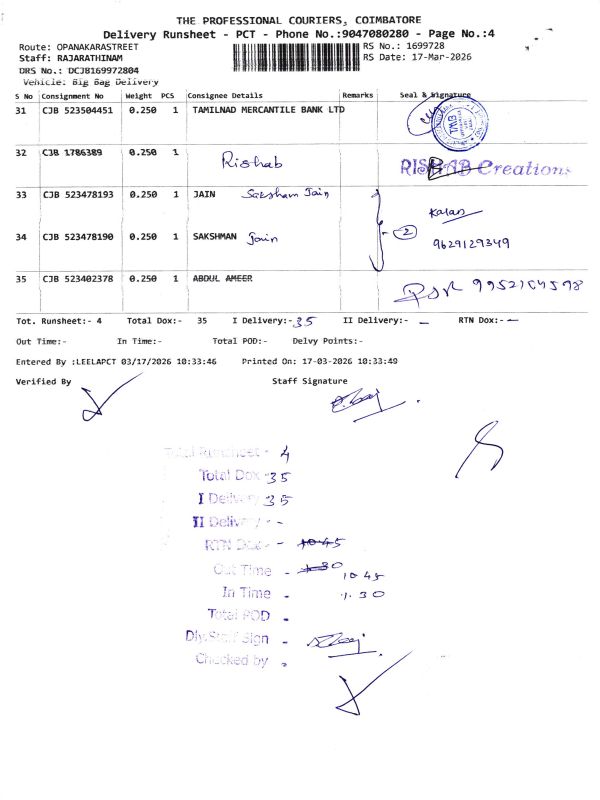 THE PROFESSIONAL COURIERS, COIMBATORE
Delivery Runsheet - PCT - Phone No.:9047080280 - Page No.:4
Route: OPANAKARASTREET RS No.: 1699728
Staff: RAJARATHINAM RS Date: 17-Mar-2026
DRS No.: DCJB169972804
Vehicle: Big Bag Delivery
S No Consignment No Weight PCS Consignee Details Remarks Seal & Signature
31 CJB 523504451 0.250 1 TAMILNAD MERCANTILE BANK LTD
TMB
32 CJB 1786389 0.250 1 Rishab RISHAB Creations
33 CJB 523478193 0.250 1 JAIN Saksham Jain
Kalan
34 CJB 523478190 0.250 1 SAKSHMAN Jain 2 9629129349
35 CJB 523402378 0.250 1 ABDUL AMEER
Tot. Runsheet:- 4 Total Dox:- 35 I Delivery:- 35 II Delivery:- - RTN Dox:- -
Out Time:- In Time:- Total POD:- Delvy Points:-
Entered By :LEELAPCT 03/17/2026 10:33:46 Printed On: 17-03-2026 10:33:49
Verified By Staff Signature
Total Runsheet - 4
Total Dox - 35
I Delivery 35
II Delivery - -
RTN Dox - 10-45
Out Time - 1-30 10-45
In Time - 1.30
Total POD -
Dly.Staff Sign -
Checked by -